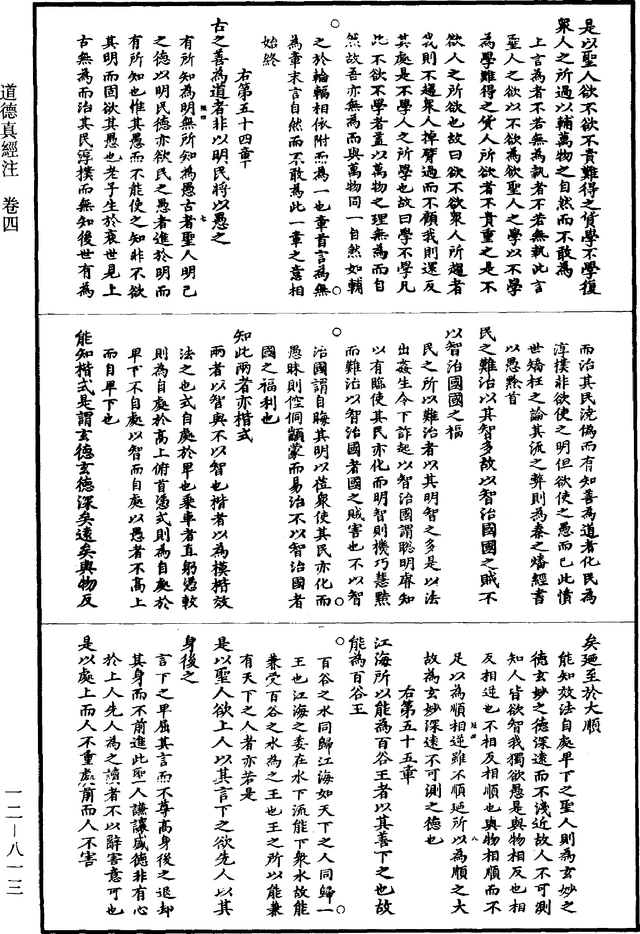 是以聖人欲不欲不貴難得之貨學不學復
衆人之所過以輔萬物之自然而不敢為
上言為者不若無為執者不若無執此言
聖人之欲以不欲為欲聖人之學以不學
為學難得之貨人所欲者不貴重之是不
欲人之所欲也故曰欲不欲衆人所趨者
我則不趨衆人掉臂過而不顧我則還反
其處是不學人之所學也故曰學不學凡
此不欲不學者蓋以萬物之理無為而自
然故吾亦無為而與萬物同一自然如輔
之於輪輻相依附而為一也章首言為無
為章末言自然而不敢為此一章之意相
始終
右第五十四章
古之善為道者非以明民將以愚之
有所知為明無所知為愚古者聖人明己
之德以明民德亦欲民之愚者進於明而
有所知也惟其愚而不能使之知非不欲
其明而固欲其愚也老子生於衰世見上
古無為而治其民淳樸而無知後世有為
而治其民澆偽而有知善為道者化民為
淳樸非欲使之明但欲使之愚而已此憤
世矯枉之論其流之弊則為秦之燔經書
以愚黔首
民之難治以其智多故以智治國國之賊不
以智治國國之福
民之所以難治者以其明智之多是以法
出姦生令下詐起以智治國謂聰明睿知
以有臨使其民亦化而明智則機巧慧黠
而難治以智治國者國之賊害也不以智
治國謂自晦其明以莅衆使其民亦化而
愚昧則倥侗顓蒙而易治不以智治國者
國之福利也
知此兩者亦楷式
兩者以智與不以智也楷者以為模楷效
法之也式自處於卑也乗車者直躬憑較
則為自處於高上俯首憑式則為自處於
卑下不自處以智而自處以愚者不高上
而自卑下也
能知楷式是謂玄德玄德深矣遠矣與物反
矣廼至於大順
能知效法自處卑下之聖人則為玄妙之
德玄妙之德深遠而不淺近故人不可測
知人皆欲智我獨欲愚是與物相反也相
反相逆也不相反相順也與物相順而不
足以為順相逆雖不順廼所以為順之大
故為玄妙深遠不可測之德也
右第五十五章
江海所以能為百谷王者以其善下之也故
能為百谷王
百谷之水同歸江海如天下之人同歸一
王也江海之委在水下流能下衆水故能
兼受百谷之水為之王也王之所以能兼
有天下之人者亦若是
是以聖人欲上人以其言下之欲先人以其
身後之
言下之卑屈其言而不尊高身後之退却
其身而不前進此聖人謙讓盛德非有心
於上人先人為之讀者不以辭害意可也
是以處上而人不重處前而人不害
道德真經注　卷四
一二—八一三